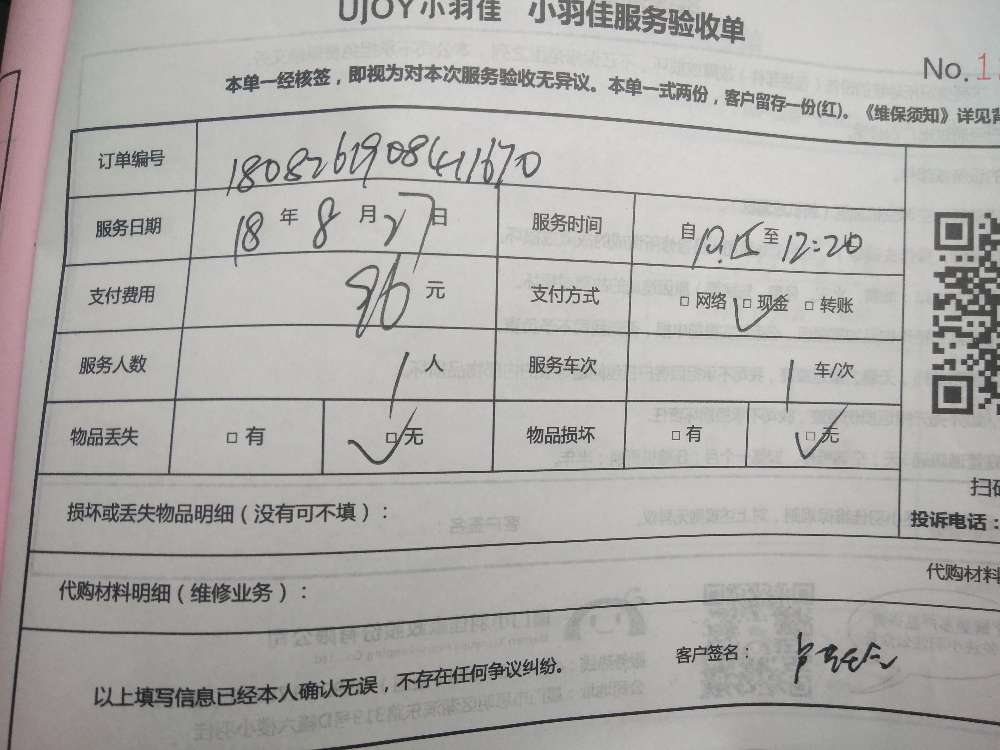 UJOY小羽佳 小羽佳服务验收单
No.1
本单一经核签，即视为对本次服务验收无异议。本单一式两份，客户留存一份(红)。《维保须知》详见背
订单编号 1808261908411670
服务日期 18 年 8 月 27 日 服务时间 自 10:15 至 12:20
支付费用 86 元 支付方式 □网络 ☑现金 □转账
服务人数 1 人 服务车次 1 车/次
物品丢失 □有 ☑无 物品损坏 □有 ☑无
扫码
损坏或丢失物品明细（没有可不填）： 投诉电话：
代购材料明细（维修业务）： 代购材料
客户签名：
以上填写信息已经本人确认无误，不存在任何争议纠纷。